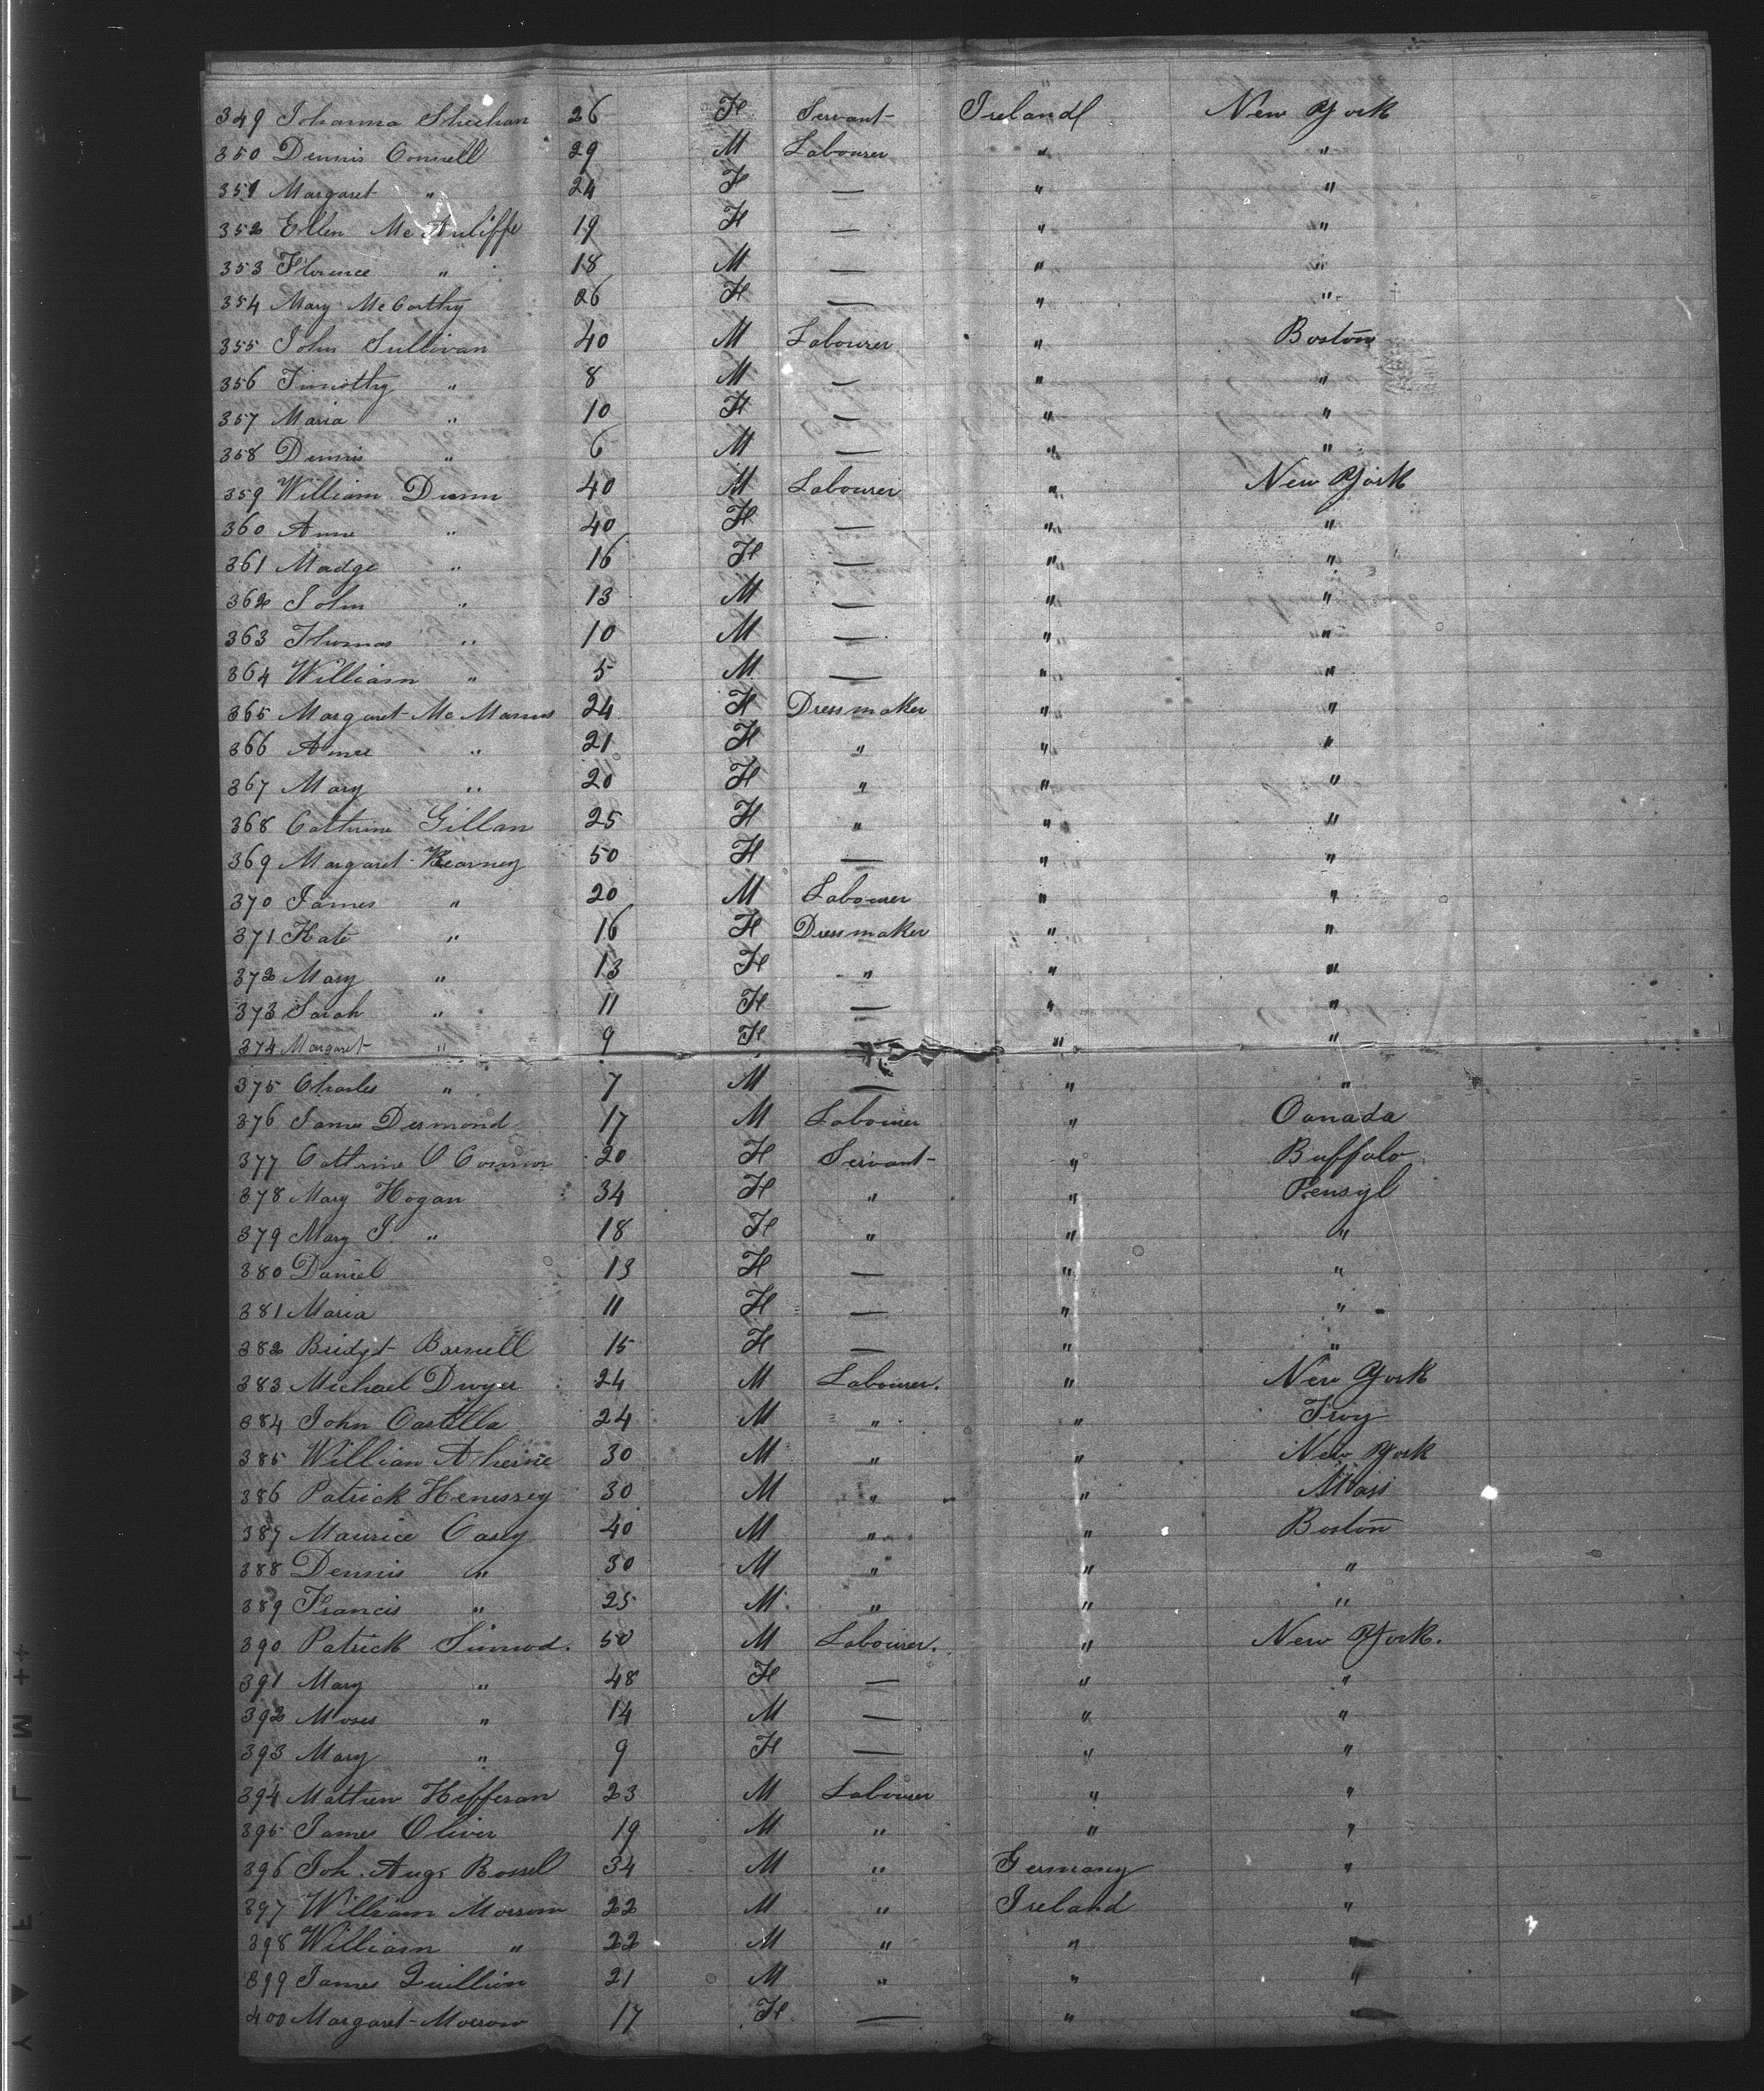 349 Johanna Sheehan 26 F Servant Ireland New York
350 Dennis Connell 29 M Labourer " "
351 Margaret " 24 F — " "
352 Ellen McAuliffe 19 F — " "
353 Florence " 18 M — " "
354 Mary McCarthy 26 F — " "
355 John Sullivan 40 M Labourer " Boston
356 Timothy " 8 M — " "
357 Maria " 10 F — " "
358 Dennis " 6 M — " "
359 William Dunn 40 M Labourer " New York
360 Anne " 40 F — " "
361 Madge " 16 F — " "
362 John " 13 M — " "
363 Thomas " 10 M — " "
364 William " 5 M — " "
365 Margaret McManus 24 F Dressmaker " "
366 Anne " 21 F " " "
367 Mary " 20 F " " "
368 Cathrine Gillan 25 F " " "
369 Margaret Kearney 50 F — " "
370 James " 20 M Labourer " "
371 Kate " 16 F Dressmaker " "
372 Mary " 13 F " " "
373 Sarah " 11 F — " "
374 Margaret " 9 F — " "
375 Charles " 7 M — " "
376 James Desmond 17 M Labourer " Canada
377 Cathrine O Connor 20 F Servant " Buffalo
378 Mary Hogan 34 F " " Pensyl
379 Mary J " 18 F " " "
380 Daniel 13 F — " "
381 Maria 11 F — " "
382 Bridget Barnell 15 F — " "
383 Michael Dwyer 24 M Labourer. " New York
384 John Castella 24 M " " Troy
385 William Aherne 30 M " " New York
386 Patrick Henessey 30 M " " Mass
387 Maurice Casey 40 M " " Boston
388 Dennis " 30 M " " "
389 Francis " 25 M " " "
390 Patrick 50 M Labourer. " New York.
391 Mary " 48 F — " "
392 Moses " 14 M — " "
393 Mary " 9 F — " "
394 Mathew Hefferan 23 M Labourer " "
395 James Oliver 19 M " " "
396 Joh. Augs 34 M " Germany "
397 William Morrow 22 M " Ireland "
398 William " 22 M " " "
399 James Quillion 21 M " " "
400 Margaret Morrow 17 F — " "